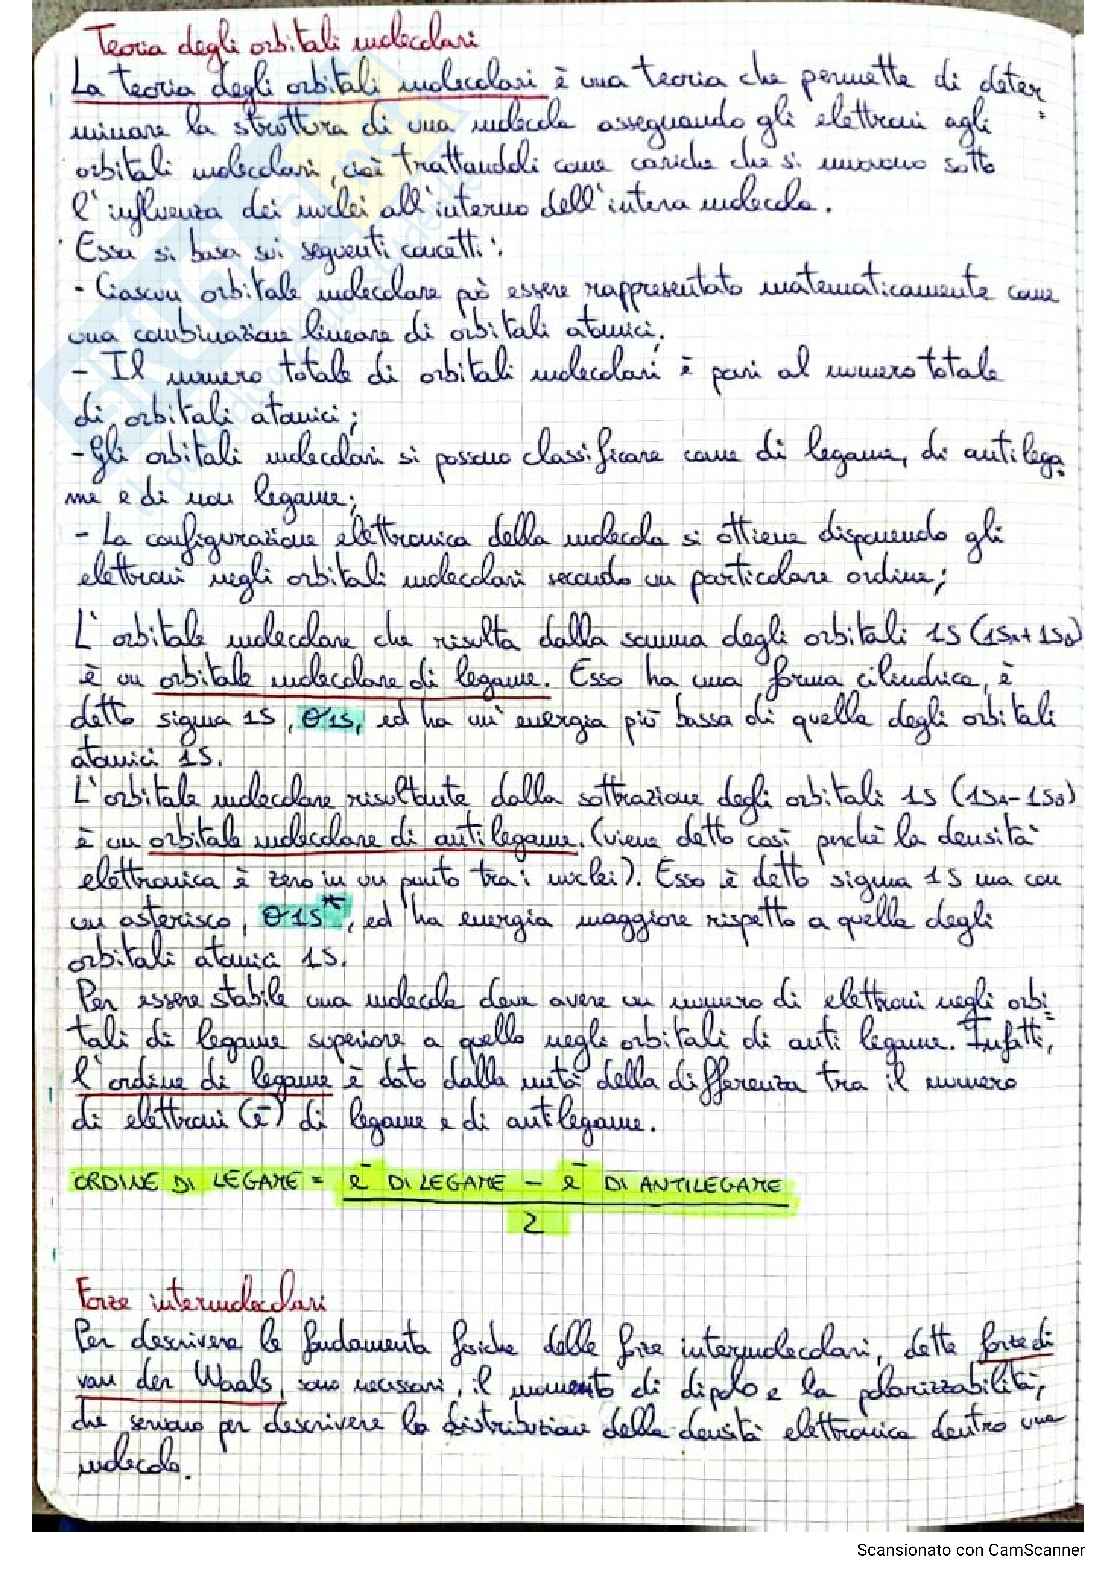 Teoria degli orbitali molecolari
La teoria degli orbitali molecolari è una teoria che permette di deter
minare la struttura di una molecola assegnando gli elettroni agli
orbitali molecolari, cioè trattandoli come cariche che si muovono sotto
l'influenza dei nuclei all'interno dell'intera molecola.
Essa si basa sui seguenti concetti:
- Ciascun orbitale molecolare può essere rappresentato matematicamente come
una combinazione lineare di orbitali atomici;
- Il numero totale di orbitali molecolari è pari al numero totale
di orbitali atomici;
- Gli orbitali molecolari si possono classificare come di legame, di antilega
me e di non legame;
- La configurazione elettronica della molecola si ottiene disponendo gli
elettroni negli orbitali molecolari secondo un particolare ordine;
L'orbitale molecolare che risulta dalla somma degli orbitali 1s (1sA+1sB)
è un orbitale molecolare di legame. Esso ha una forma cilindrica, è
detto sigma 1s, σ1s, ed ha un'energia più bassa di quella degli orbitali
atomici 1s.
L'orbitale molecolare risultante dalla sottrazione degli orbitali 1s (1sA-1sB)
è un orbitale molecolare di antilegame. (viene detto così perchè la densità
elettronica è zero in un punto tra i nuclei). Esso è detto sigma 1s ma con
un asterisco, σ1s*, ed ha energia maggiore rispetto a quella degli
orbitali atomici 1s.
Per essere stabile una molecola deve avere un numero di elettroni negli orbi
tali di legame superiore a quello negli orbitali di anti legame. Infatti,
l'ordine di legame è dato dalla metà della differenza tra il numero
di elettroni (e⁻) di legame e di antilegame.
ORDINE DI LEGAME = e⁻ DI LEGAME - e⁻ DI ANTILEGAME
2
Forze intermolecolari
Per descrivere le fondamenta fisiche delle forze intermolecolari, dette forze di
van der Waals, sono necessari, il momento di dipolo e la polarizzabilità,
che servono per descrivere la distribuzione della densità elettronica dentro una
molecola.
Scansionato con CamScanner